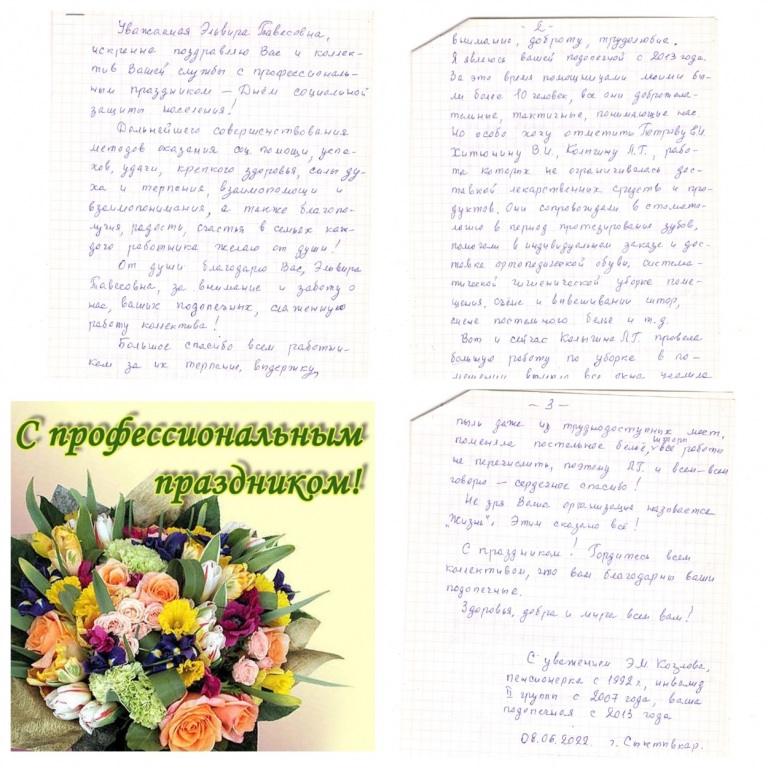 Уважаемая Эльвира Павесовна,
искренне поздравляю Вас и коллек-
тив Вашей службы с профессиональ-
ным праздником — Днём социальной
защиты населения!
Дальнейшего совершенствования
методов оказания соц. помощи, успе-
хов, удачи, крепкого здоровья, силы ду-
ха и терпения, взаимопомощи и
взаимопонимания, а также благопо-
лучия, радости, счастья в семьях каж-
дого работника желаю от души!
От души благодарю Вас, Эльвира
Павесовна, за внимание и заботу о
нас, ваших подопечных, слаженную
работу колектива!
Большое спасибо всем работни-
кам за их терпение, выдержку,
- 2 -
внимание, доброту, трудолюбие.
Я являюсь вашей подопечной с 2013 года.
За это время помощницами моими бы-
ли более 10 человек, все они доброжела-
тельные, тактичные, понимающие нас.
Но особо хочу отметить Петрову В.И.
Хитюнину В.И., Колпгину Л.Г., рабо-
та которых не ограничивалась дос-
тавкой лекарственных средств и про-
дуктов. Они сопровождали в стомато-
логию в период протезирования зубов,
помогали в индивидуальном заказе и дос-
тавке ортопедической обуви, система-
тической гигиенической уборке поме-
щения, съёме и вывешивании штор,
смене постельного белья и т.д.
Вот и сейчас Л.Г. провела
большую работу по уборке в по-
мещении вымыла все окна удалила
- 3 -
пыль даже из труднодоступных мест,
поменяла постельное бельё, шторы, все работы
не перечислить, поэтому Л.Г. и всем-всем
говорю — сердечное спасибо!
Не зря Ваша организация называется
"Жизнь". Этим сказано всё!
С праздником! Гордитесь всем
колективом, что вам благодарны ваши
подопечные.
Здоровья, добра и мира всем вам!
С уважением Э.М. Козлова,
пенсионерка с 1992 г, инвалид
II группы с 2007 года, ваша
подопечная с 2013 года
08.06.2022 г. Сыктывкар.
С профессиональным
праздником!